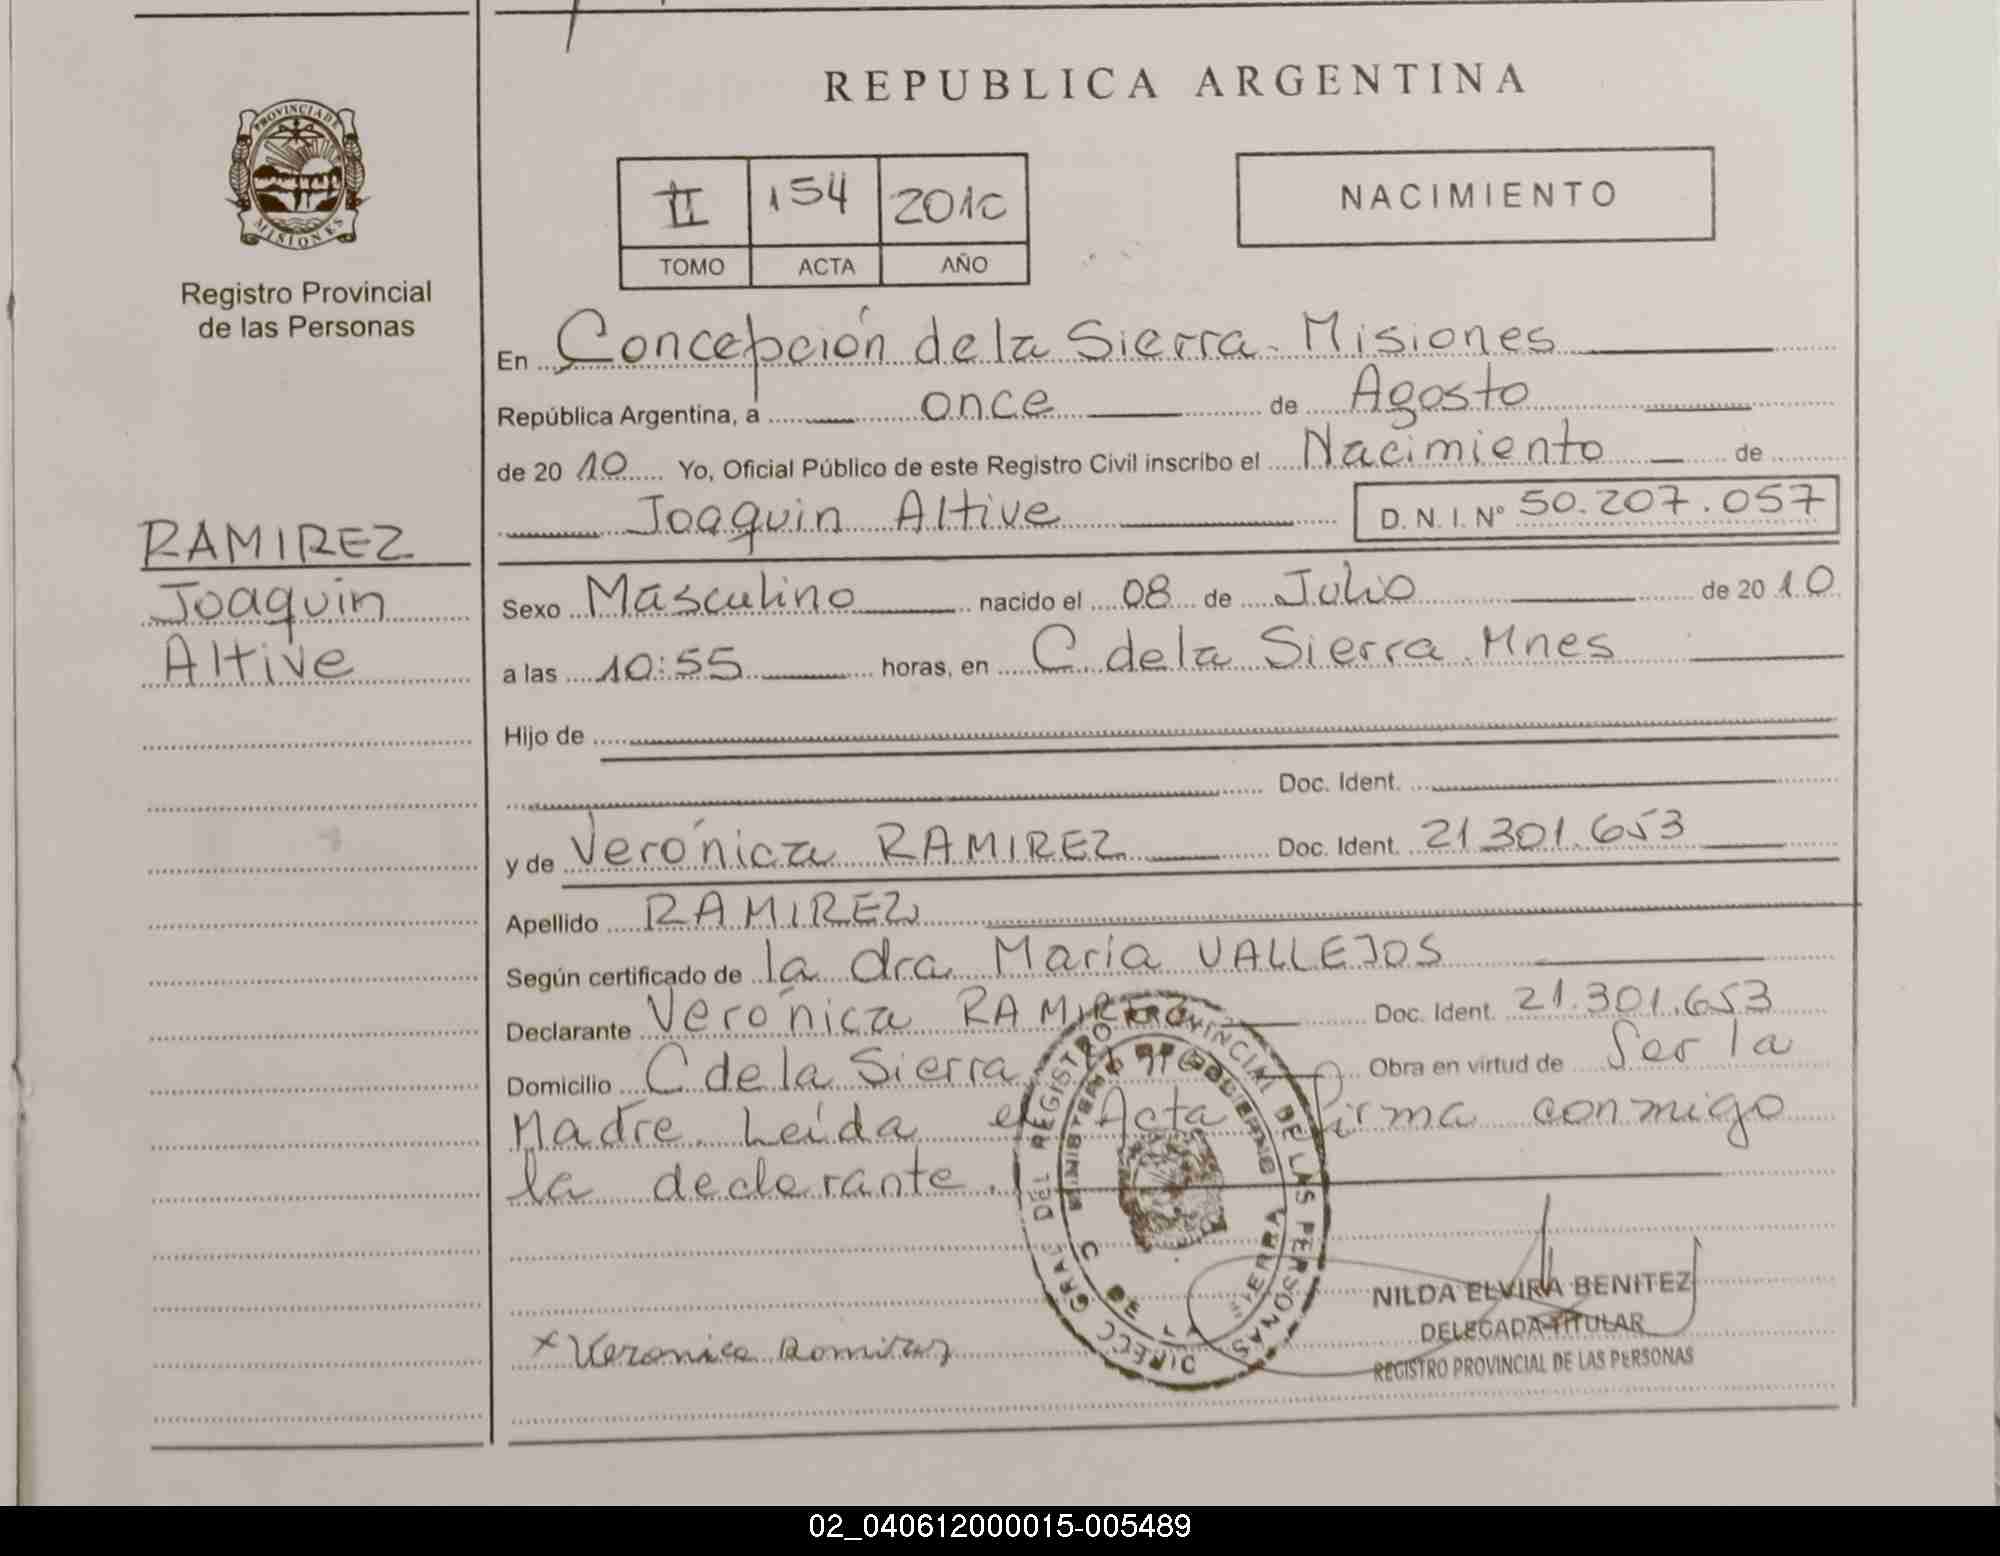 REPUBLICA ARGENTINA
PROVINCIA DE
MISIONES
Registro Provincial
de las Personas
II 154 2010
TOMO ACTA AÑO
NACIMIENTO
En Concepción de la Sierra. Misiones
República Argentina, a once de Agosto
de 2010 Yo, Oficial Público de este Registro Civil inscribo el Nacimiento de
Joaquin Altive D.N.I.N° 50.207.057
RAMIREZ
Joaquin
Altive
Sexo Masculino nacido el 08 de Julio de 2010
a las 10:55 horas, en C de la Sierra. Mnes
Hijo de
Doc. Ident.
y de Verónica RAMIREZ Doc. Ident. 21.301.653
Apellido RAMIREZ
Según certificado de la dra María VALLEJOS
Declarante Verónica RAMIREZ Doc. Ident. 21.301.653
Domicilio C de la Sierra Obra en virtud de Ser la
Madre. Leída el Acta firma conmigo
la declarante.
DIREC. GRAL DEL REGISTRO PROVINCIAL DE LAS PERSONAS
MINISTERIO DE GOBIERNO
C DE LA SIERRA
x Veronica Ramirez
NILDA ELVIRA BENITEZ
DELEGADA TITULAR
REGISTRO PROVINCIAL DE LAS PERSONAS
02_040612000015-005489